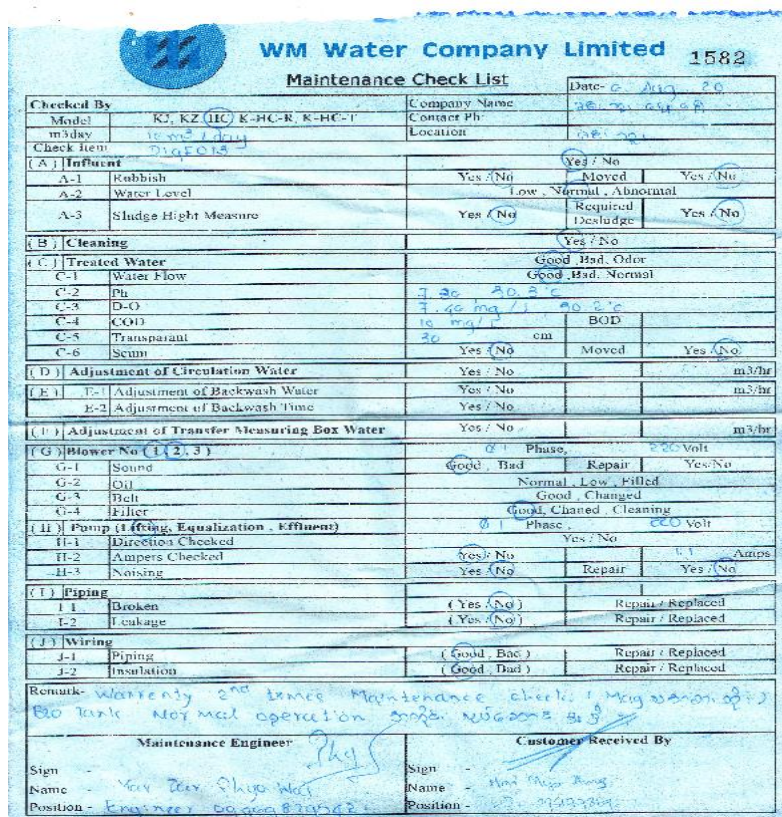 WM Water Company Limited 1582
Maintenance Check List
Date- Aug 20
Checked By Company Name
Model KJ, KZ HC, K-HC-R, K-HC-T Contact Ph:
m3day 10 m3 / day Location
Check Item
( A ) Influent Yes / No
A-1 Rubbish Yes / No Moved Yes / No
A-2 Water Level Low , Normal , Abnormal
A-3 Sludge Hight Measure Yes / No Required Desludge Yes / No
( B ) Cleaning Yes / No
( C ) Treated Water Good ,Bad, Odor
C-1 Water Flow Good ,Bad, Normal
C-2 Ph 30.3°c
C-3 D-O mg / l 30.2°c
C-4 COD 10 mg/l BOD
C-5 Transparant 30 cm
C-6 Scum Yes / No Moved Yes / No
( D ) Adjustment of Circulation Water Yes / No m3/hr
( E ) E-1 Adjustment of Backwash Water Yes / No m3/hr
E-2 Adjustment of Backwash Time Yes / No
( F ) Adjustment of Transfer Measuring Box Water Yes / No m3/hr
( G ) Blower No ( 1, 2, 3 ) Ø 1 Phase, 220 Volt
G-1 Sound Good , Bad Repair Yes/No
G-2 Oil Normal , Low , Filled
G-3 Belt Good , Changed
G-4 Filter Good, Chaned , Cleaning
( H ) Pump (Lifting, Equalization , Effluent) Ø 1 Phase , 220 Volt
H-1 Direction Checked Yes / No
H-2 Ampers Checked Yes / No 1.1 Amps
H-3 Noising Yes / No Repair Yes / No
( I ) Piping
I-1 Broken ( Yes / No ) Repair / Replaced
I-2 Leakage ( Yes / No ) Repair / Replaced
( J ) Wiring
J-1 Piping ( Good , Bad ) Repair / Replaced
J-2 Insulation ( Good , Bad ) Repair / Replaced
Remark- Warrenty 2nd Maintenance check
Bio Tank Normal operation
Maintenance Engineer Customer Received By
Sign - Sign -
Name - Name -
Position - Engineer Position -